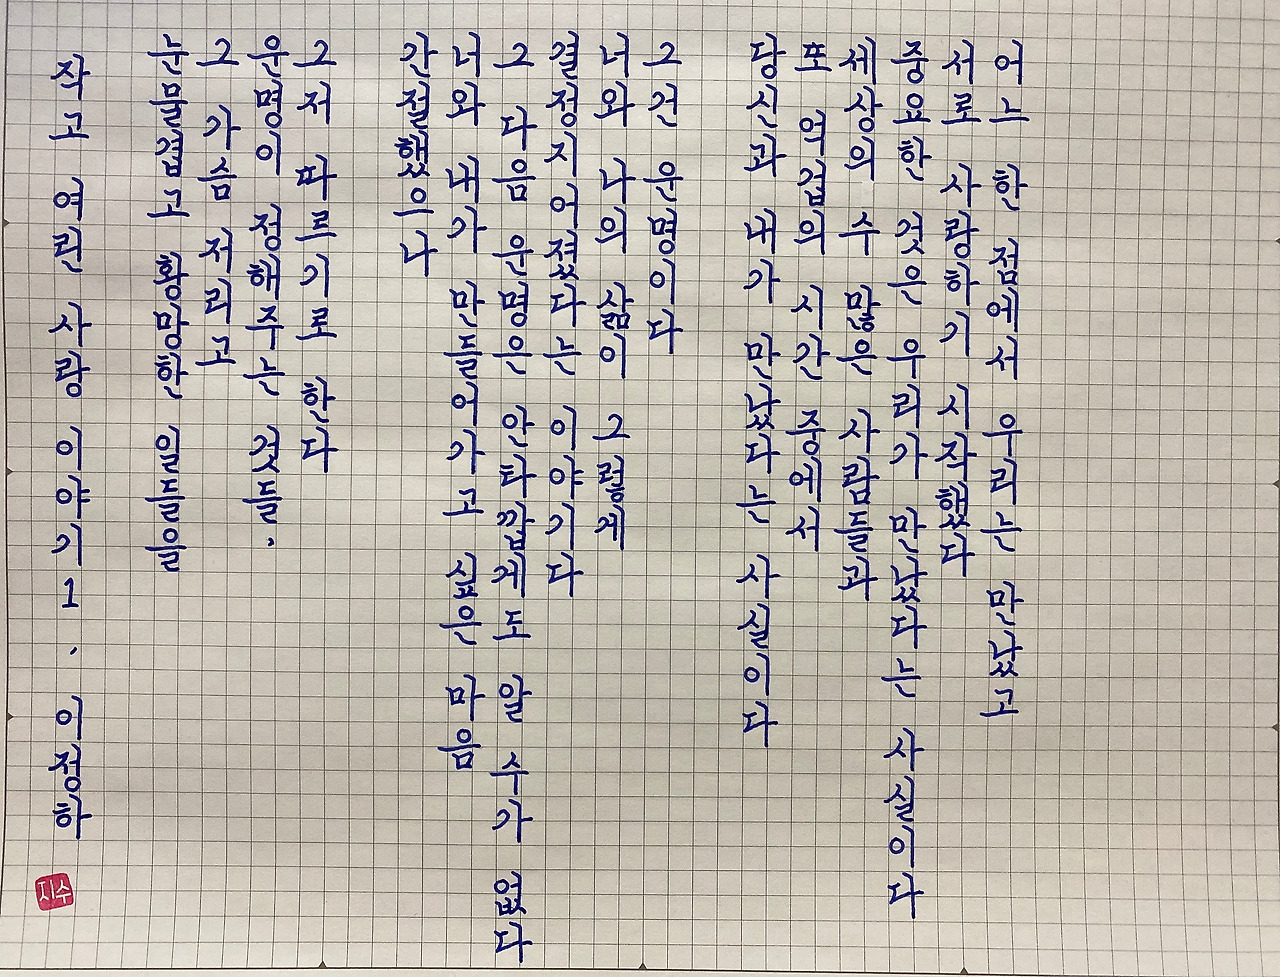 어느 한 점에서 우리는 만났고
서로 사랑하기 시작했다
중요한 것은 우리가 만났다는 사실이다
세상의 수 많은 사람들과
또 억겁의 시간 중에서
당신과 내가 만났다는 사실이다
그건 운명이다
너와 나의 삶이 그렇게
결정지어졌다는 이야기다
그 다음 운명은 안타깝게도 알 수가 없다
너와 내가 만들어가고 싶은 마음
간절했으나
그저 따르기로 한다
운명이 정해주는 것들,
그 가슴 저리고
눈물겹고 황망한 일들을
작고 여린 사랑 이야기 1. 이정하
지수